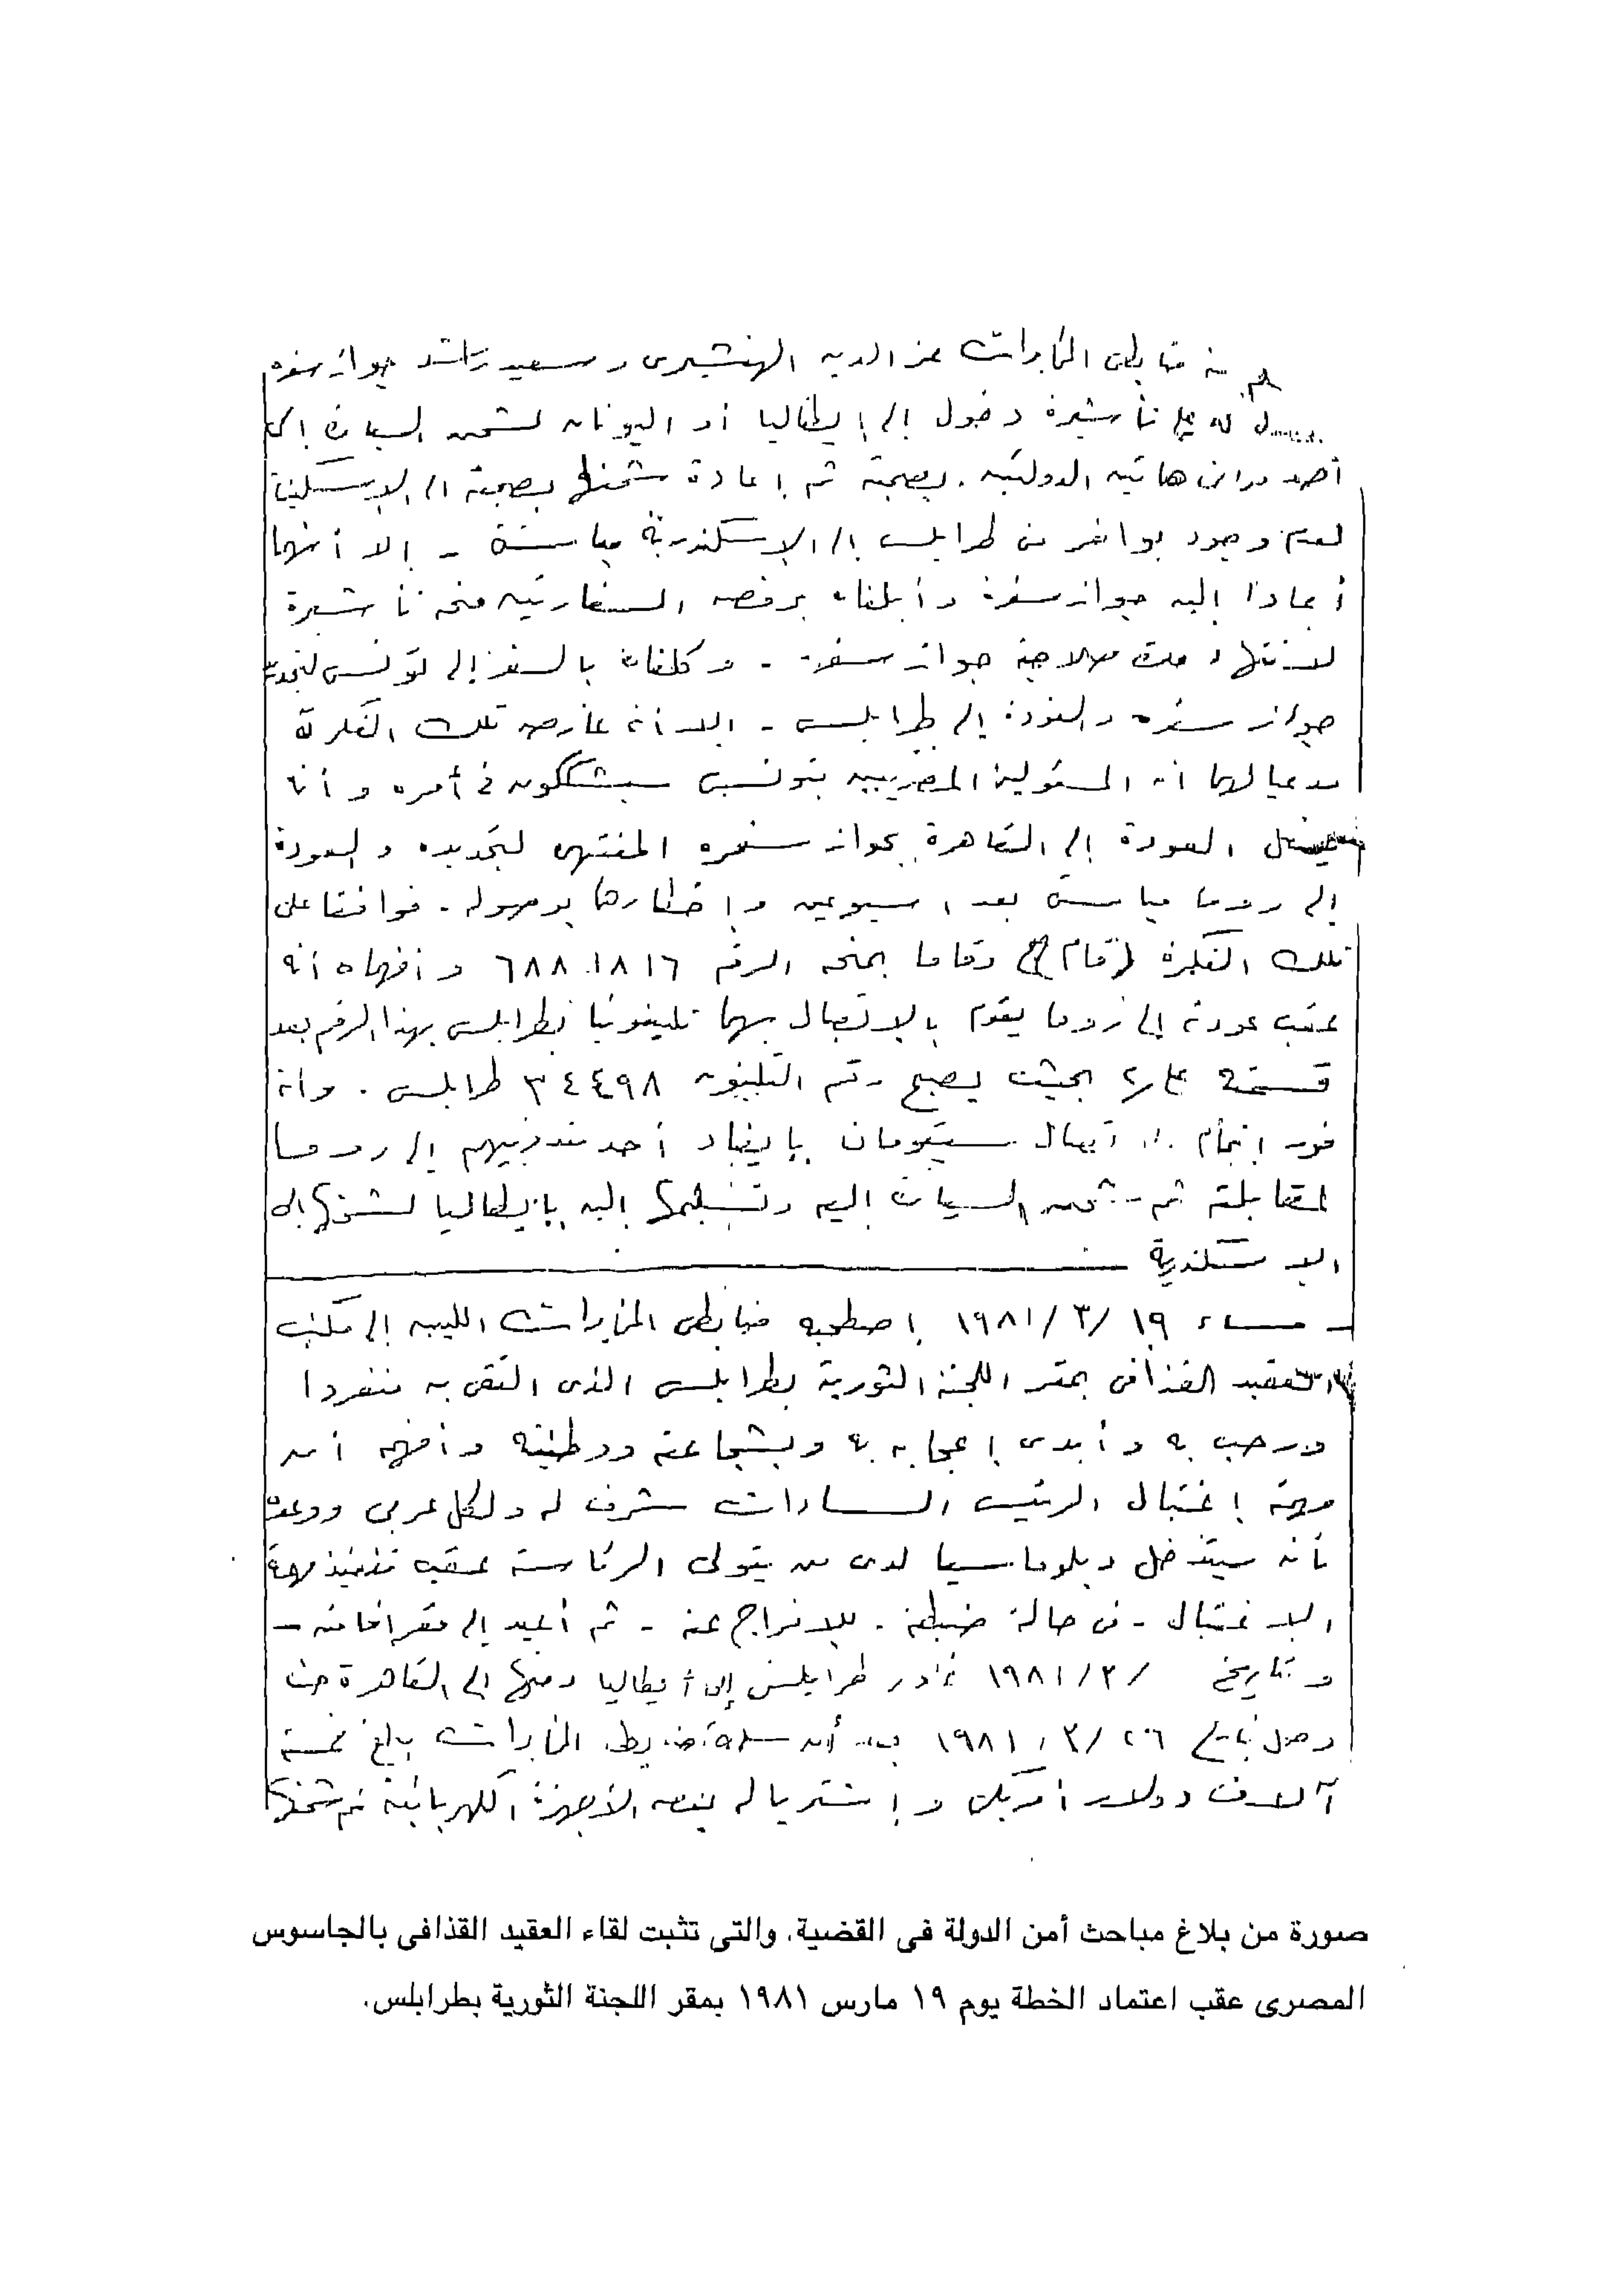 ضابطى المخابرات عز الدين الهنشيرى وسعيد راشد جواز سفره
له على تأشيرة دخول إلى إيطاليا أو اليونان لشحن السيارة إلى
أحد موانى هاتين الدولتين بصحبته ثم إعادة شحنها بصحبته إلى الإسكندرية
لعدم وجود بواخر من طرابلس إلى الإسكندرية مباشرة - إلا أنهما
أعادا إليه جواز سفره وأبلغاه برفض السفارتين منحه تأشيرة
لانتهاء مدة صلاحية جواز سفره - وكلفاه بالسفر إلى تونس لتجديد
جواز سفره والعودة إلى طرابلس - إلا أنه عارض تلك الفكرة
مدعيا لهما أن المسئولين المصريين بتونس سيشككون فى أمره وأنه
يفضل العودة إلى القاهرة بجواز سفره المنتهى لتجديده والعودة
إلى روما مباشرة بعد اسبوعين وإخطارهما بوصوله - فوافقا على
تلك الفكرة وقاما بمنحه الرقم ٦٨٨٠١٨١٦ وأفهماه أنه
عقب عودته إلى روما يقوم بالاتصال بهما تليفونيا بطرابلس بهذا الرقم بعد
قسمته على ٢ بحيث يصبح رقم التليفون ٣٤٤٠٩٨ طرابلس . وأنه
فور إتمام الاتصال سيقومان بإيفاد أحد مندوبيهم إلى روما
لمقابلته ثم شحن السيارة إليه وتسليمها إليه بإيطاليا لشحنها إلى
الاسكندرية
- مساء ١٩/٣/١٩٨١ إصطحبه ضابطى المخابرات الليبية إلى مكتب
العقيد القذافى بمقر اللجنة الثورية بطرابلس الذى التقى به منفردا
ورحب به وأبدى إعجابه به وبشجاعته ووطنيته وأفهمه أن
مهمة إغتيال الرئيس السادات شرف له ولكل عربى ووعده
بأنه سيتدخل دبلوماسيا لدى من يتولى الرئاسة عقب تنفيذ مهمة
الاغتيال - فى حالة ضبطه - للافراج عنه - ثم أعيد إلى مقر إقامته -
وبتاريخ /٣/١٩٨١ غادر طرابلس إلى إيطاليا ومنها إلى القاهرة حيث
وصل بتاريخ ٢٦/٣/١٩٨١ بعد أن سلمه ضابطى المخابرات مبلغ خمسة
آلاف دولار أمريكى وإشتريا له بعض الأجهزة الكهربائية تم شحنها
صورة من بلاغ مباحث أمن الدولة فى القضية. والتى تثبت لقاء العقيد القذافى بالجاسوس
المصرى عقب اعتماد الخطة يوم ١٩ مارس ١٩٨١ بمقر اللجنة الثورية بطرابلس.